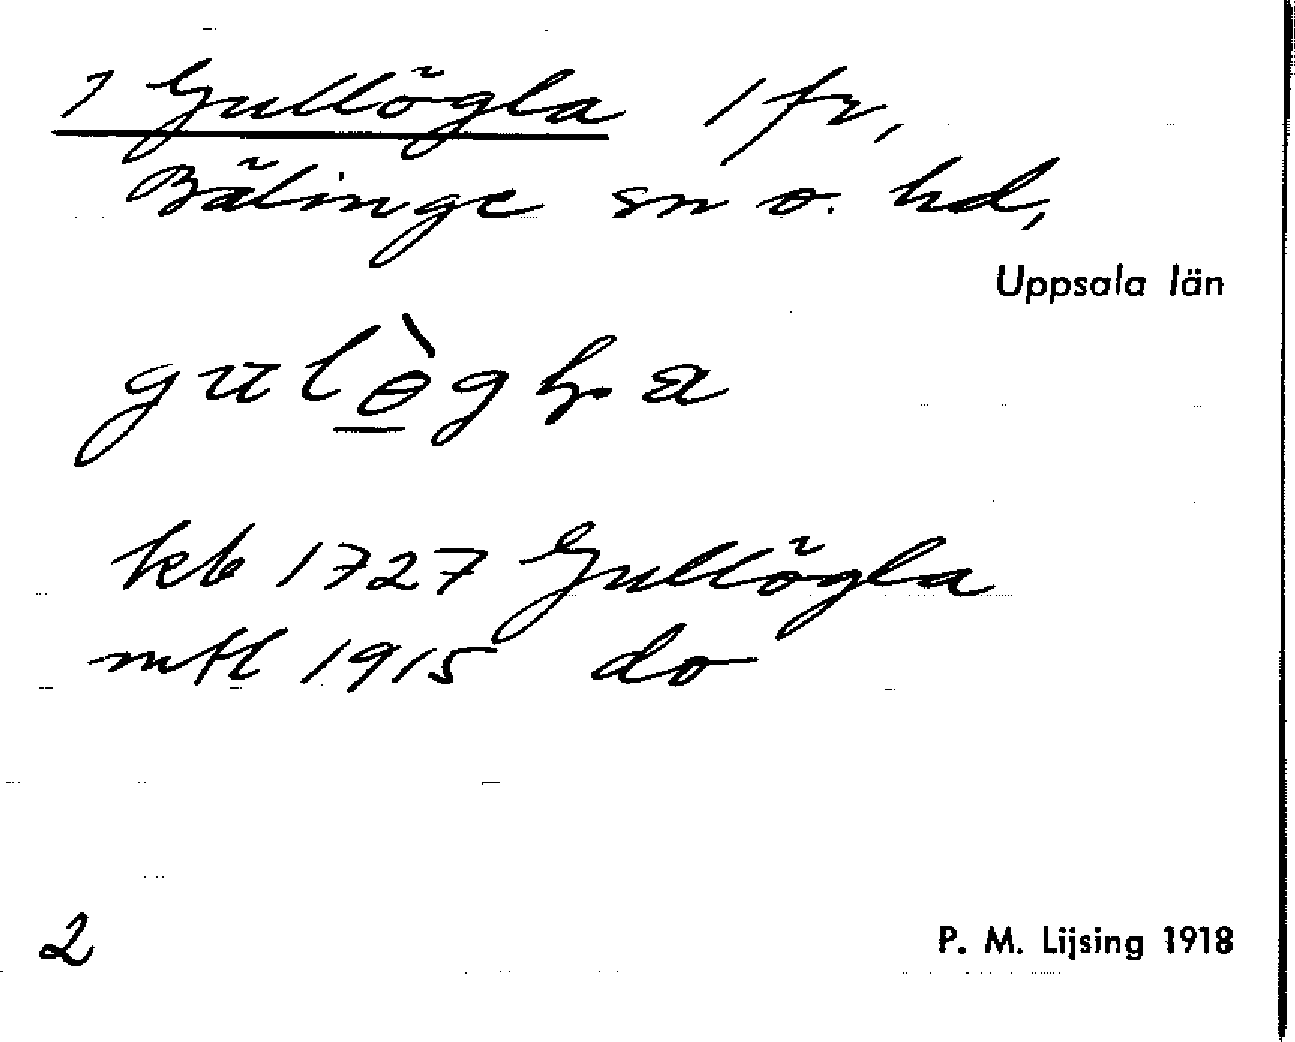 1 Gullögla 1 fr,
Bälinge sn o. hd,
Uppsala län
gulògla
kb 1727 Gullögla
mtl 1915 do
2
P. M. Lijsing 1918